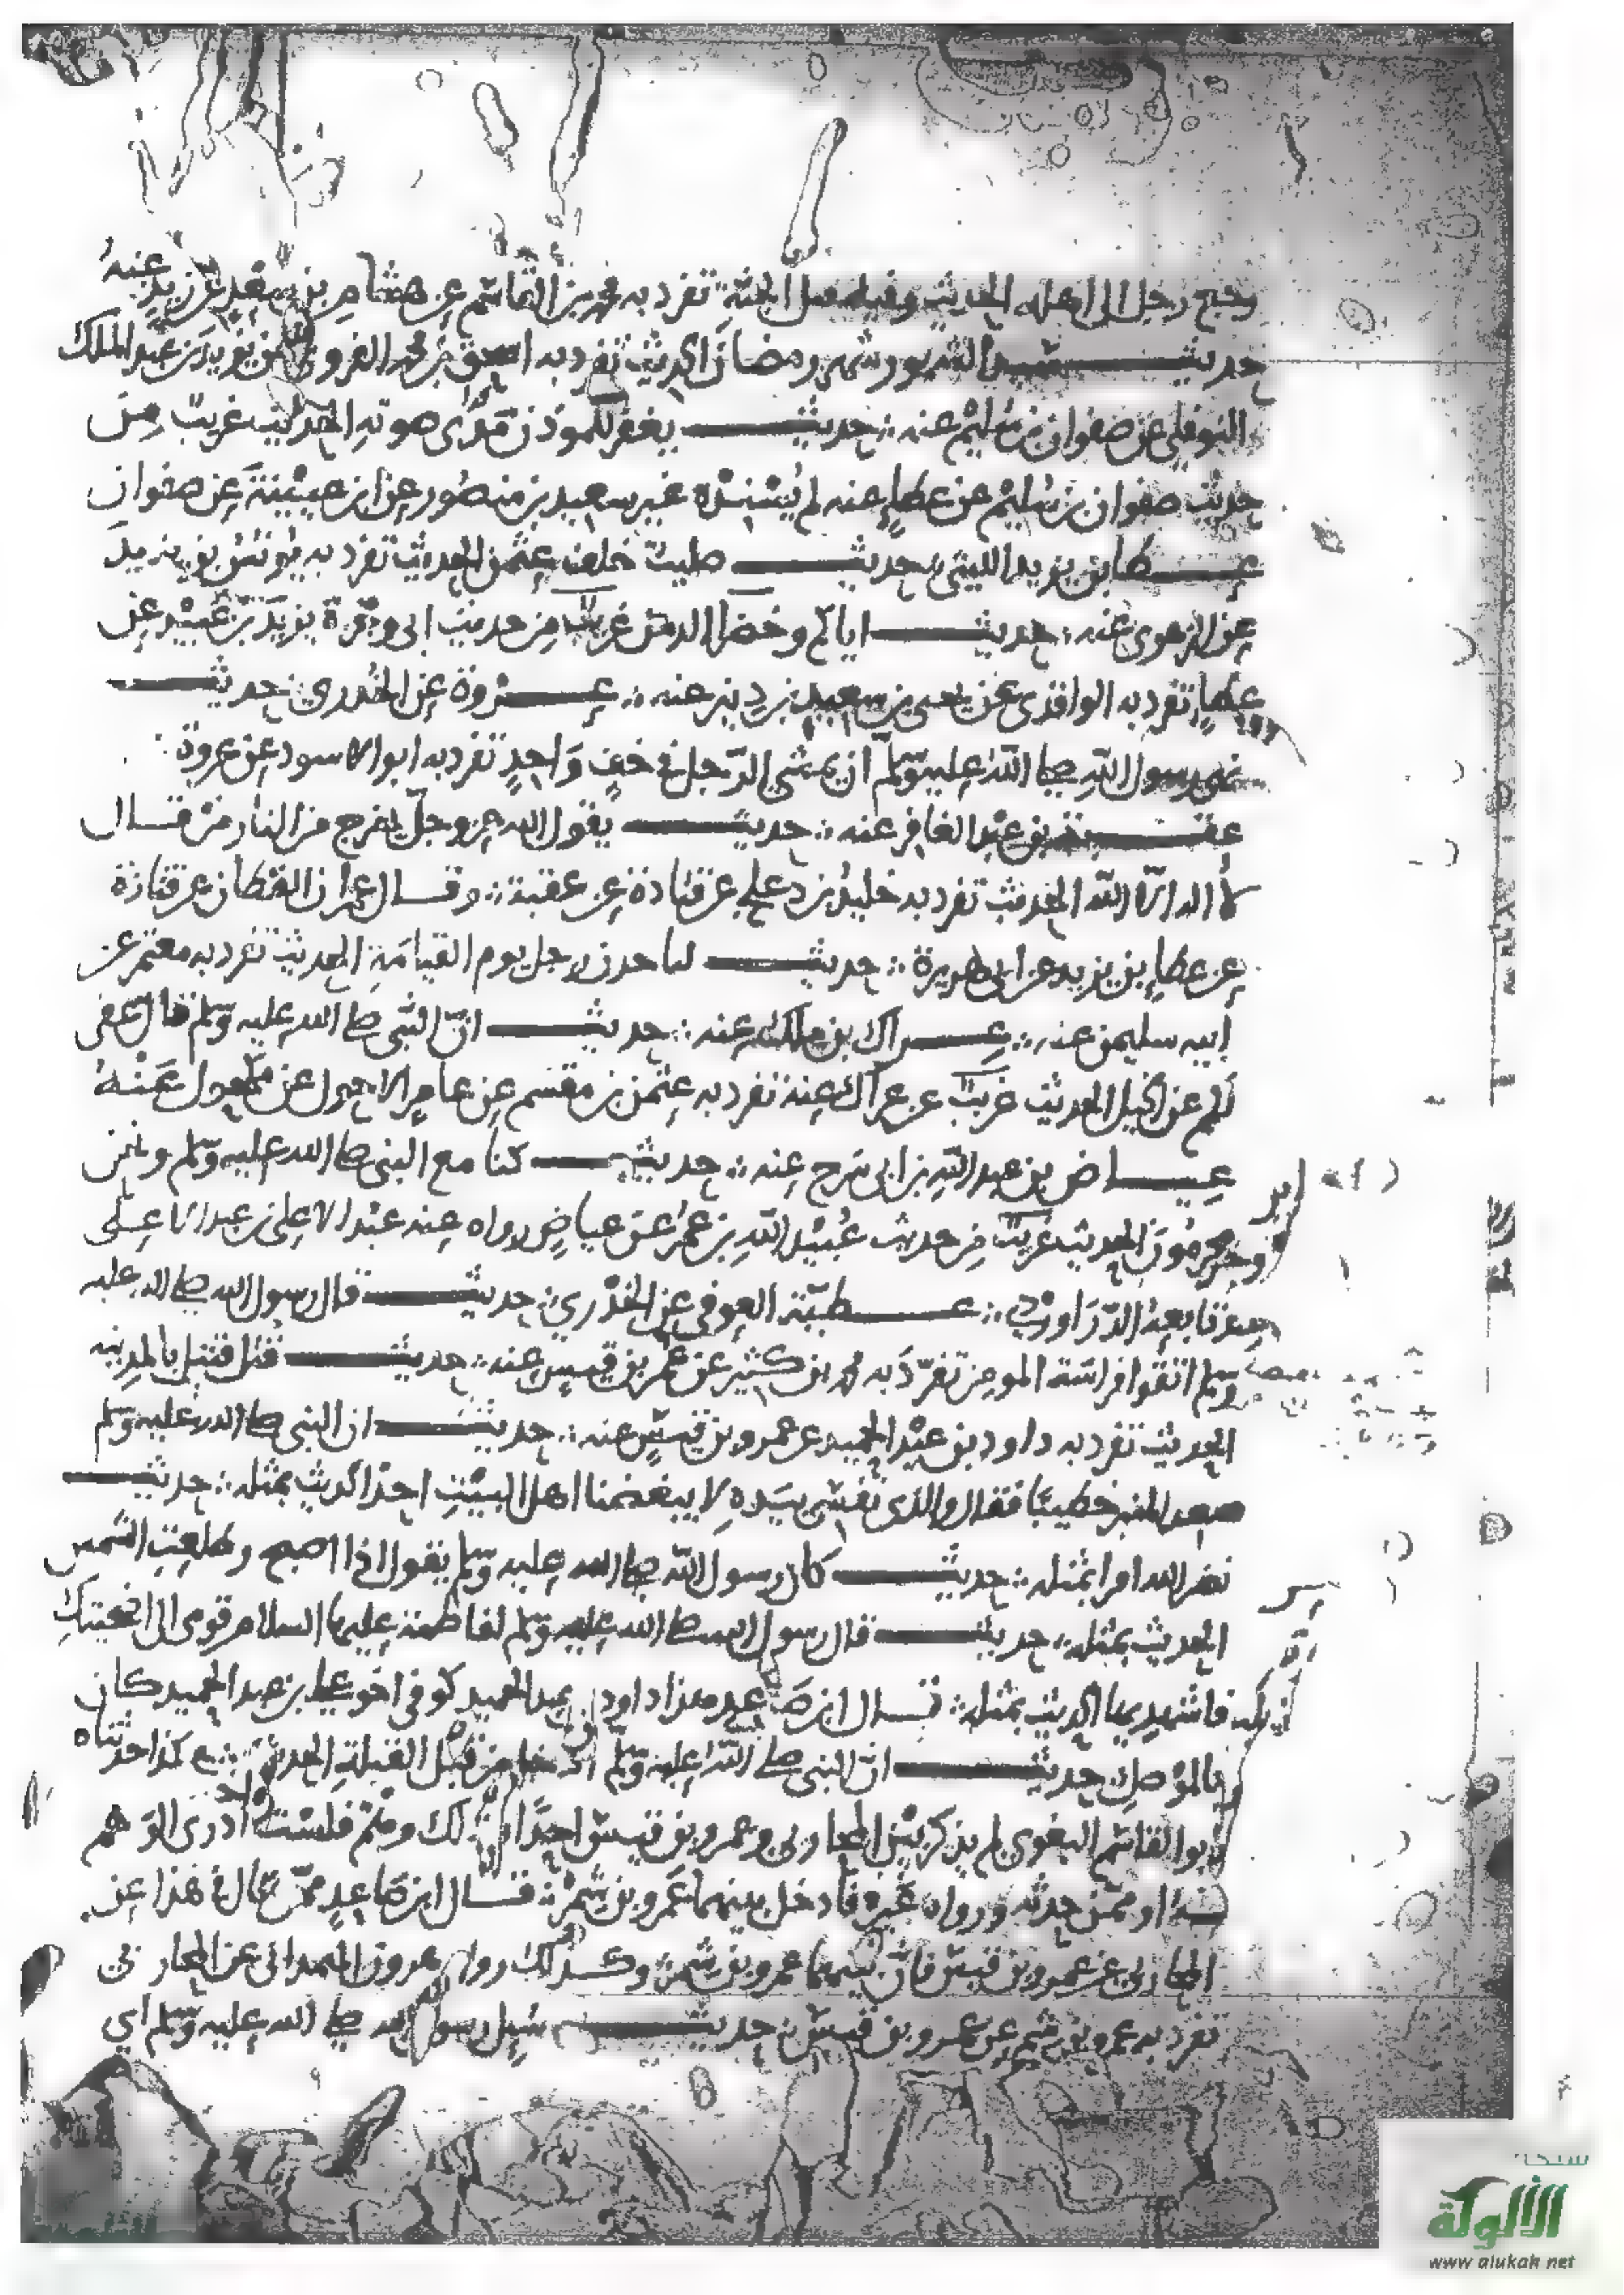 وحج رجل الى اهله الحديث وفيه سل الجنة تفرد به محمد بن القاسم عن هشام بن سعد عن زيد عنه
حديث سيد الشهور شهر رمضان الحديث تفرد به اسحق بن محمد الفروي عن يزيد بن عبد الملك
النوفلي عن صفوان بن سُليم عنه حديث يغفر للموذن مَدَى صوته الحديث غريب من
حديث صفوان بن سُليم عن عطاء عنه لم يُسنده غير سعيد بن منصور عن ابن عيينة عن صفوان
عطا بن يزيد الليثي حديث صليت خلف عثمن الحديث تفرد به يونس بن يزيد
عن الزهري عنه حديث اياكم وخضرا الدمن غريب من حديث ابي وجزة يزيد بن عبيد عن
عطاء تفرد به الواقدي عن يحيى بن سعيد بن دينر عنه عروة عن الخدري حديث
نهى رسول الله صلى الله عليه وسلم ان يمشي الرجل في خف واحد تفرد به ابو الاسود عن عروة
عقبة بن عبد الغافر عنه حديث يقول الله عز وجل اخرج من النار من قال
لا اله الا الله الحديث تفرد به خليد بن دعلج عن قتادة عن عقبة وقال عمران القطان عن قتادة
عن عطاء بن يزيد عن ابي هريرة حديث لياخذن رجل يوم القيامة الحديث تفرد به معتمر عن
ابيه سليمن عنه عراك بن ملك عنه حديث ان النبي صلى الله عليه وسلم قال عفي
لكم عن الخيل الحديث غريب عن عراك عنه تفرد به عثمن بن مقسم عن عامر الاحول عن مكحول عنه
عياض بن عبد الله بن ابي سرح عنه حديث كنا مع النبي صلى الله عليه وسلم ونحن
الحديث غريب من حديث عُبيد الله بن عمر عن عياض رواه عنه عبد الاعلى بن عبد الاعلى
تابعه الدراوردي عطية العوفي عن الخدري حديث قال رسول الله صلى الله عليه
وسلم اتقوا فراسة المومن تفرد به محمد بن كثير عن عمر بن قيس عنه حديث قتل قتيل بالمدينه
الحديث تفرد به داود بن عبد الحميد عن عمرو بن قيس عنه حديث ان النبي صلى الله عليه وسلم
صعد المنبر خطيبا فقال والذي نفسي بيده لا يبغضنا اهل البيت احد الحديث بمثله حديث
نضر الله امرا بمثله حديث كان رسول الله صلى الله عليه وسلم يقول اذا اصبح وطلعت الشمس
الحديث بمثله حديث قال رسول الله صلى الله عليه وسلم لفاطمة عليها السلام قومي الى اضحيتك
فاشهديها الحديث بمثله قال ابن صاعد هذا داود بن عبد الحميد كوفي اخو علي بن عبد الحميد كان
بالموصل حديث ان النبي صلى الله عليه وسلم من قبل القبلة الحديث كذا حدثناه
ابو القاسم البغوي لم يذكر بين المحاربي وعمرو بن قيس احدا فلست ادري الوهم
منه او ممن حدثه ورواه غيره فادخل بينهما عمرو بن شمر قال ابن صاعد ممن قال في هذا عن
المحاربي عن عمرو بن قيس فان بينهما عمرو بن شمر وكذلك رواه هرون الهمداني عن المحاربي
تفرد به عمرو بن شمر عن عمرو بن قيس حديث سُيل رسول الله صلى الله عليه وسلم اي
شبكة
الألوكة
www.alukah.net